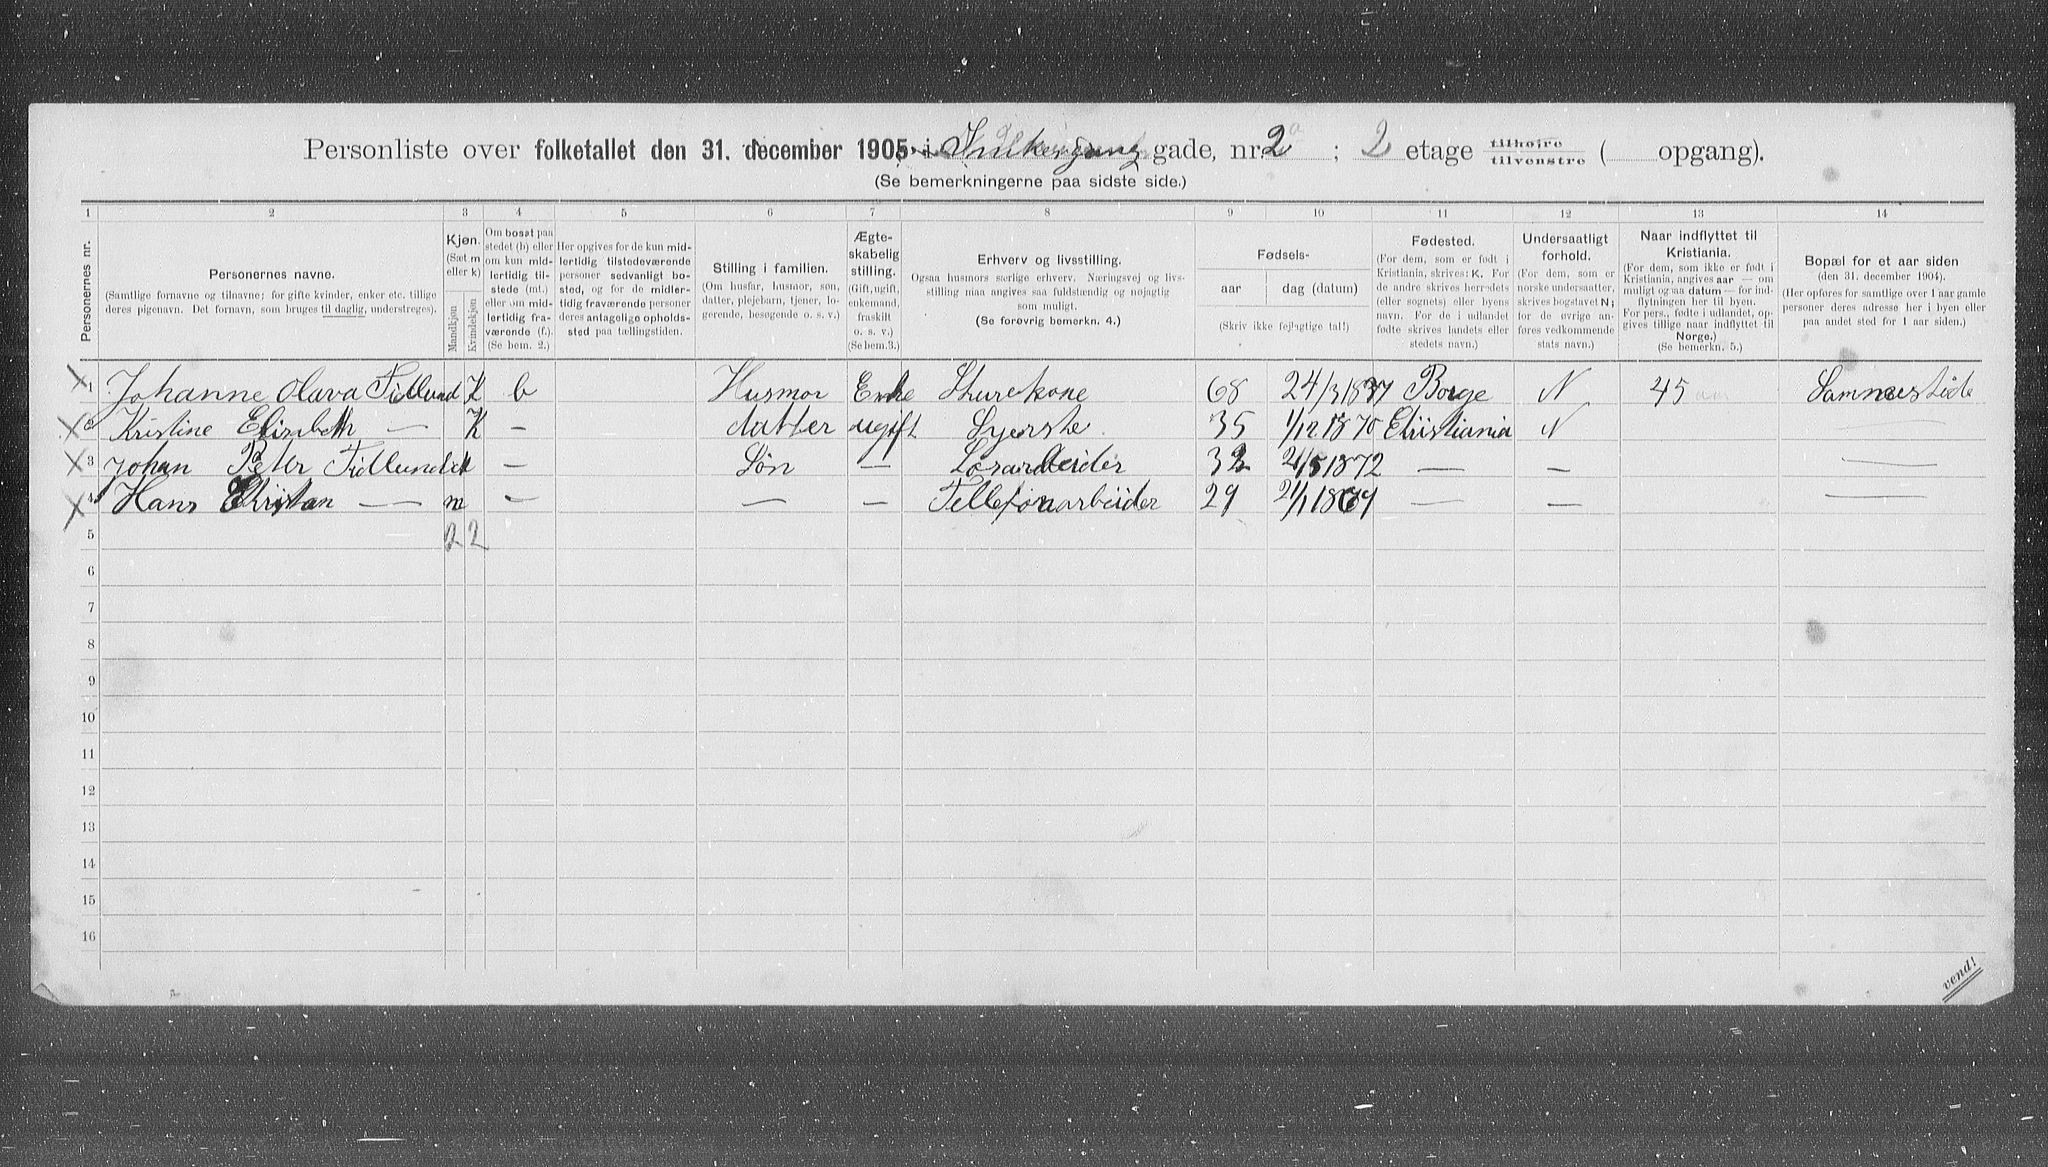 Personliste over folketallet den 31. december 1905 i Smikergang gade, nr. 2a ; 2 etage tilhøire tilvenstre ( opgang).
(Se bemerkningerne paa sidste side.)
1 2 3 4 5 6 7 8 9 10 11 12 13 14
Personernes nr.
Personernes navne.
(Samtlige fornavne og tilnavne; for gifte kvinder, enker etc. tillige
deres pigenavn. Det fornavn, som bruges til daglig, understreges).
Kjøn.
(Sæt m
eller k)
Mandkjøn
Kvindekjøn
Om bosat paa
stedet (b) eller
om kun mid-
lertidig til-
stede (mt.)
eller om mid-
lertidig fra-
værende (f.).
(Se bem. 2.)
Her opgives for de kun mid-
lertidig tilstedeværende
personer sedvanlig bo-
sted, og for de midler-
tidig fraværende personer
deres antagelige opholds-
sted paa tællingstiden.
Stilling i familien.
(Om husfar, husmor, søn,
datter, plejebarn, tjener, lo-
gerende, besøgende o. s. v.)
Ægte-
skabelig
stilling.
(Gift, ugift,
enkemand,
fraskilt
o. s. v.)
(Se bem.3.)
Erhverv og livsstilling.
Ogsaa husmors særlige erhverv. Næringsvej og livs-
stilling maa angives saa fuldstændig og nøjagtig
som muligt.
(Se forøvrig bemerkn. 4.)
Fødsels-
aar dag (datum)
(Skriv ikke fejlagtige tal!)
Fødested.
(For dem, som er født i
Kristiania, skrives: K. For
de andre skrives herredets
(eller sognets) eller byens
navn. For de i udlandet
fødte skrives landets eller
stedets navn.)
Undersaatligt
forhold.
(For dem, som er
norske undersaatter,
skrives bogstavet N;
for de øvrige an-
føres vedkommende
stats navn.)
Naar indflyttet til
Kristiania.
(For dem, som ikke er født i
Kristiania, angives aar — om
muligt og saa datum — for ind-
flytningen her til byen.
For pers., fødte i udlandet, op-
gives tillige naar indflyttet til
Norge.)
(Se bemerkn. 5.)
Bopæl for et aar siden
(den 31. december 1904).
(Her opføres for samtlige over 1 aar gamle
personer deres adresse her i byen eller
paa andet sted for 1 aar siden.)
1 Johanne Olava Fidlund K b Husmor Enke Skurekone 68 24/3 1837 Borge N 45 aar Sammested
2 Kristine Elisabeth — K — datter ugift Syerske 35 1/12 1870 Christiania N —
3 Johan Peter Fidlund — Søn — Løsarbeider 32 21/5 1872 — — —
4 Hans Christian — m — — — Tellefonarbeider 29 21/1 18 — — —
5 2 2
6
7
8
9
10
11
12
13
14
15
16
vend!